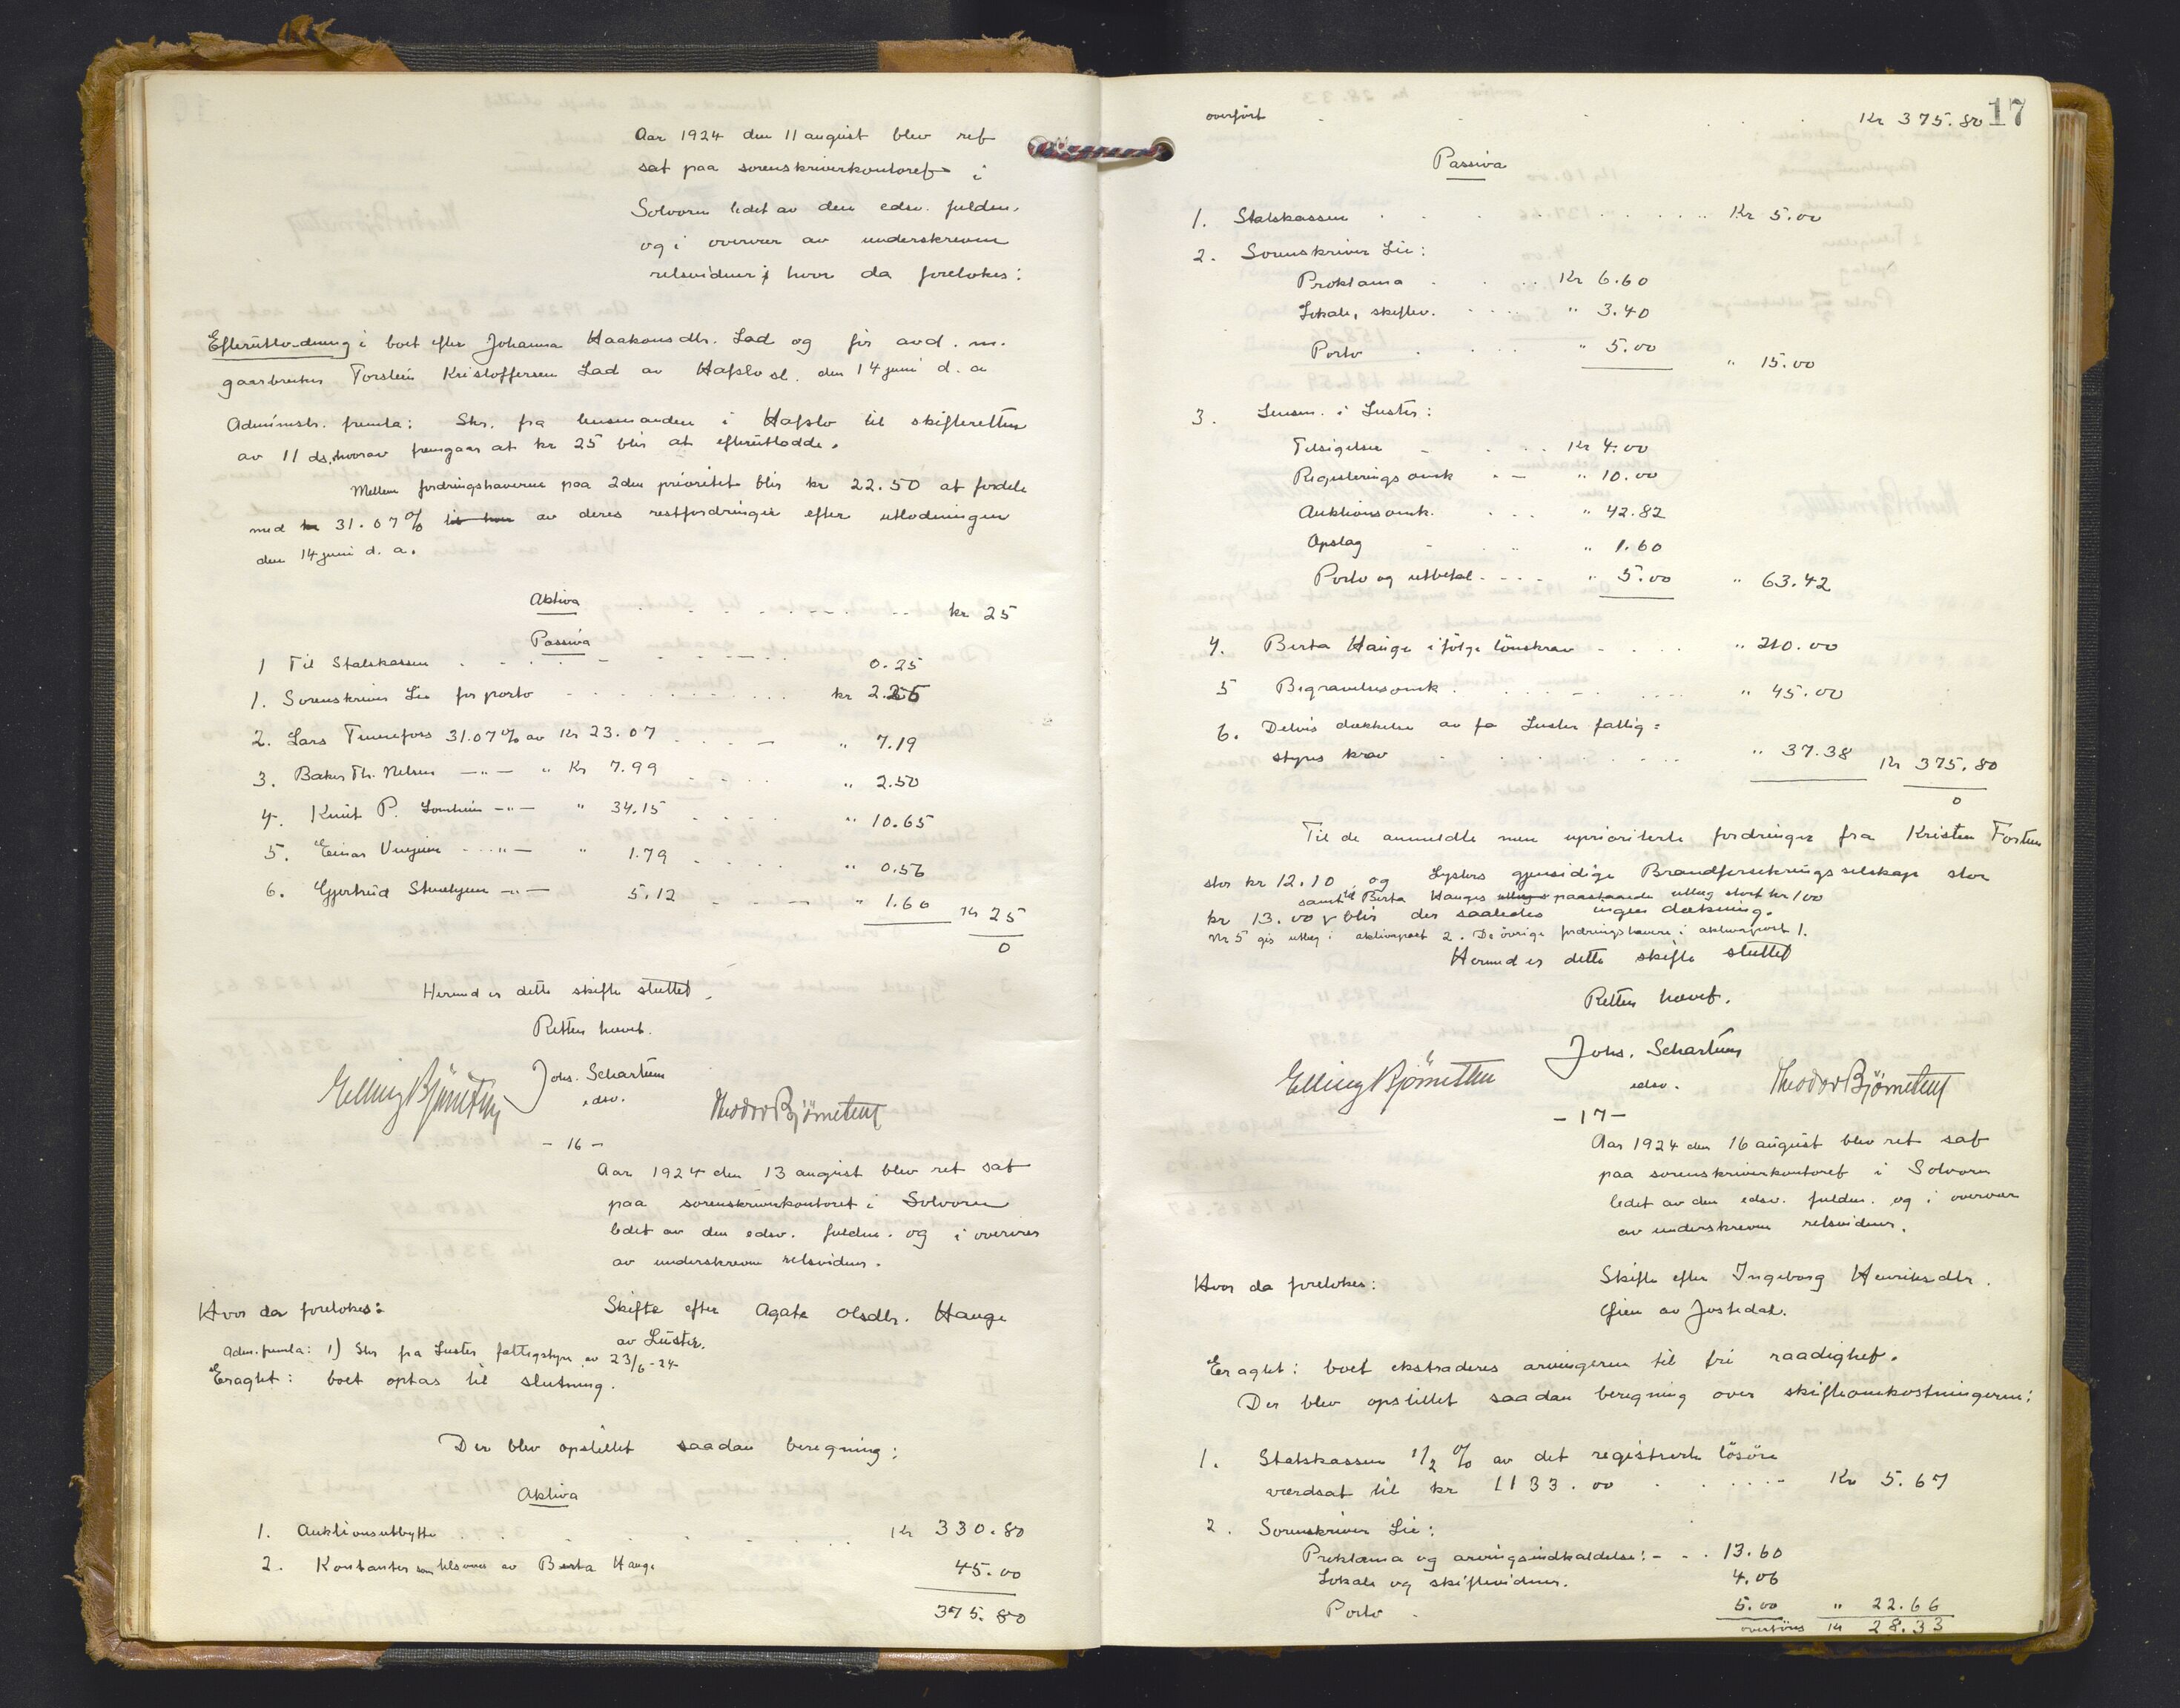 Aar 1924 den 11 august blev ret
sat paa sorenskriverkontoret i
Solvorn ledet av den edsv. fuldm.
og i overvær av underskrevne
retsvidner, hvor da foretokes:
Efterutlodning i boet efter Johanna Haakonsdtr. Lad og før avd. m.
gaardbruker Torstein Kristoffersen Lad av Hafslo sl. den 14 juni d. a
Administr. fremla: Skr. fra lensmanden i Hafslo til skifteretten
av 11 ds. hvorav fremgaar at kr 25 blir at efterutlodde.
Mellem fordringshaverne paa 2den prioritet blir kr 22.50 at fordele
med kr 31.07% av deres restfordringer efter utlodningen
den 14 juni d. a.
Aktiva kr 25
Passiva
1 Til Statskassen 0.25
1. Sorenskriver Lie for porto kr 2.25
2. Lars Tunnefors 31.07% av Kr 23.07 " 7.19
3. Baker Th. Nelsen —"— " Kr 7.99 " 2.50
4. Knut P. Lomheim —"— " 34.15 " 10.65
5. Einar —"— " 1.79 " 0.56
6. Gjertrud —"— 5.12 " 1.60 Kr 25
0
Hermed er dette skifte sluttet.
Retten hævet.
Johs. Schartum
edsv.
Elling Bjørnetun
Theodor Bjørnetun
- 16 -
Aar 1924 den 13 august blev ret sat
paa sorenskriverkontoret i Solvorn
ledet av den edsv. fuldm. og i overvær
av underskrevne retsvidner.
Hvor da foretokes:
Skifte efter Agate Olsdtr. Hauge
av Luster.
Adm. fremla: 1) Skr fra Luster fattigstyre av 23/6-24
Eragtet: boet optas til slutning.
Der blev opstillet saadan beregning:
Aktiva
1. Auktionsutbytte Kr 330.80
2. Kontanter som tilsvares av Berta Hauge 45.00
375.80
17
overført Kr 375.80
Passiva
1. Statskassen Kr 5.00
2. Sorenskriver Lie:
Proklama Kr 6.60
Lokale, skiftev. " 3.40
Porto " 5.00 " 15.00
3. Lensm. i Luster:
Tilsigelser Kr 4.00
Registeringsomk " 10.00
Auktionsomk. " 42.82
Opslag " 1.60
Porto og utbetal. " 5.00 " 63.42
4. Berta Hauge ifølge lönskrav " 210.00
5 Begravelsesomk. " 45.00
6. Delvis dækkelse av fa Luster fattig=
styres krav " 37.38 Kr 375.80
0
Til de anmeldte men uprioriterte fordringer fra Kristen Fortun
stor kr 12.10 og Lysters gjensidige Brandforsikringsselskap stor
samt til Berta Hauges paastaaede utlæg stort kr 100
kr 13.00 v blir der saaledes ingen dækning.
Nr 5 gis utlæg i aktivapost 2. De øvrige fordringshavere i aktivapost 1.
Hermed er dette skifte sluttet
Retten hævet.
Johs. Schartum
edsv.
Elling Bjørnetun
Theodor Bjørnetun
- 17 -
Aar 1924 den 16 august blev ret sat
paa sorenskriverkontoret i Solvorn
ledet av den edsv. fuldm. og i overvær
av underskrevne retsvidner.
Hvor da foretokes:
Skifte efter Ingeborg Henriksdtr.
Gjien av Jostedal.
Eragtet: boet ekstraderes arvingerne til fri raadighet.
Der blev opstillet saadan beregning over skifteomkostningerne:
1. Statskassen 1/2 % av det registrerte lösöre
værdsat til kr 1133.00 Kr 5.67
2. Sorenskriver Lie:
Proklama og arvingsindkaldelse: 13.60
Lokale og skiftevidner. 4.06
Porto 5.00 " 22.66
overföres kr 28.33